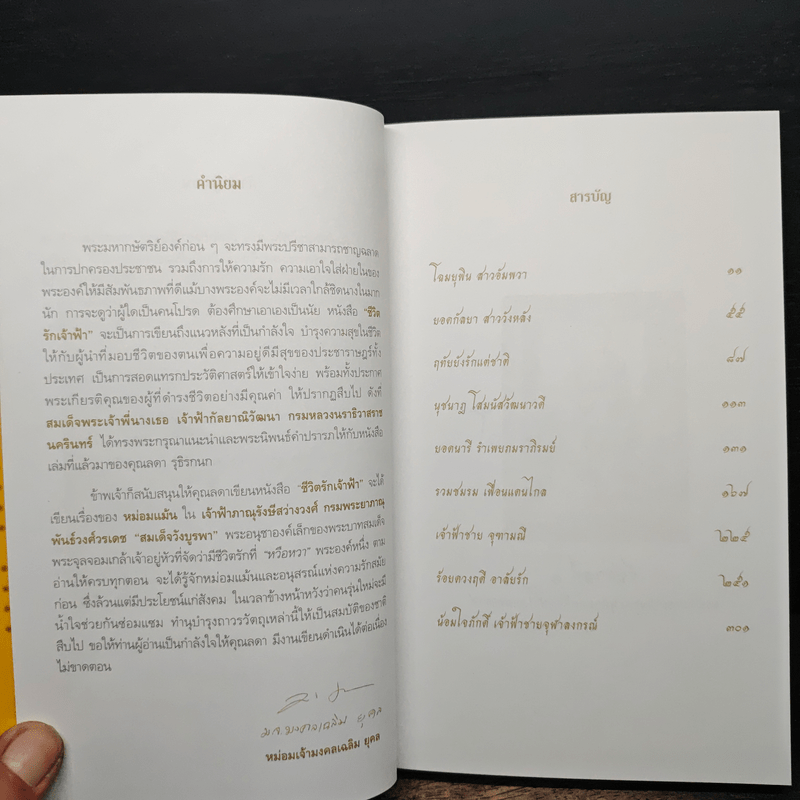 คำนิยม
พระมหากษัตริย์องค์ก่อน ๆ จะทรงมีพระปรีชาสามารถชาญฉลาด
ในการปกครองประชาชน รวมถึงการให้ความรัก ความเอาใจใส่ฝ่ายในของ
พระองค์ให้มีสัมพันธภาพที่ดีแม้บางพระองค์จะไม่มีเวลาใกล้ชิดนางในมาก
นัก การจะดูว่าผู้ใดเป็นคนโปรด ต้องศึกษาเอาเองเป็นนัย หนังสือ "ชีวิต
รักเจ้าฟ้า" จะเป็นการเขียนถึงแนวหลังที่เป็นกำลังใจ บำรุงความสุขในชีวิต
ให้กับผู้นำที่มอบชีวิตของตนเพื่อความอยู่ดีมีสุขของประชาราษฎร์ทั้ง
ประเทศ เป็นการสอดแทรกประวัติศาสตร์ให้เข้าใจง่าย พร้อมทั้งประกาศ
พระเกียรติคุณของผู้ที่ดำรงชีวิตอย่างมีคุณค่า ให้ปรากฏสืบไป ดังที่
สมเด็จพระเจ้าพี่นางเธอ เจ้าฟ้ากัลยาณิวัฒนา กรมหลวงนราธิวาสราช
นครินทร์ ได้ทรงพระกรุณาแนะนำและพระนิพนธ์คำปรารภให้กับหนังสือ
เล่มที่แล้วมาของคุณลดา รุธิรกนก
ข้าพเจ้าก็สนับสนุนให้คุณลดาเขียนหนังสือ "ชีวิตรักเจ้าฟ้า" จะได้
เขียนเรื่องของ หม่อมแม้น ใน เจ้าฟ้าภาณุรังษีสว่างวงศ์ กรมพระยาภาณุ
พันธ์วงศ์วรเดช "สมเด็จวังบูรพา" พระอนุชาองค์เล็กของพระบาทสมเด็จ
พระจุลจอมเกล้าเจ้าอยู่หัวที่จัดว่ามีชีวิตรักที่ "หรือหวา" พระองค์หนึ่ง ตาม
อ่านให้ครบทุกตอน จะได้รู้จักหม่อมแม้นและอนุสรณ์แห่งความรักสมัย
ก่อน ซึ่งล้วนแต่มีประโยชน์แก่สังคม ในเวลาข้างหน้าหวังว่าคนรุ่นใหม่จะมี
น้ำใจช่วยกันซ่อมแซม ทำนุบำรุงถาวรวัตถุเหล่านี้ให้เป็นสมบัติของชาติ
สืบไป ขอให้ท่านผู้อ่านเป็นกำลังใจให้คุณลดา มีงานเขียนดำเนินได้ต่อเนื่อง
ไม่ขาดตอน
ม.จ.มงคลเฉลิม ยุคล
หม่อมเจ้ามงคลเฉลิม ยุคล
สารบัญ
โฉมยุพิน สาวอัมพวา ๑๑
ยอดกัลยา สาววังหลัง ๕๕
ฤทัยยังรักแต่ชาติ ๘๗
นุชนาฏ โสมนัสวัฒนาวดี ๑๑๓
ยอดนารี รำเพยภมราภิรมย์ ๑๓๑
รวมชมรม เพื่อนแดนไกล ๑๖๗
เจ้าฟ้าชาย จุฑามณี ๒๒๕
ร้อยดวงฤดี อาลัยรัก ๒๕๑
น้อมใจภักดิ์ เจ้าฟ้าชายจุฬาลงกรณ์ ๓๐๑